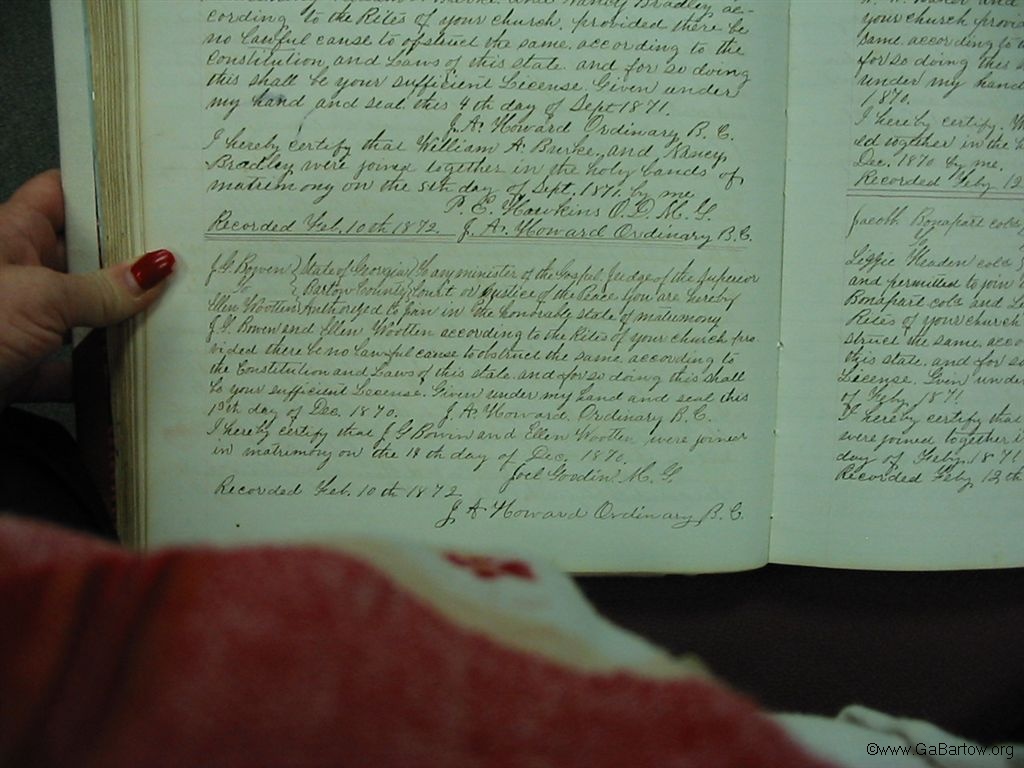 and Nancy Bradley ac-
cording to the Rites of your church, provided there be
no lawful cause to obstruct the same, according to the
Constitution and Laws of this state and for so doing
this shall be your sufficient License. Given under
my hand and seal this 4th day of Sept 1871.
J. A. Howard Ordinary B. C.
I hereby certify that William A. Burke, and Nancy
Bradley were joined together in the holy bands of
matrimony on the 5th day of Sept, 1871 by me
P. E. Hawkins O. D. M. G.
Recorded Feb. 10th 1872. J. A. Howard Ordinary B. C.
J. G. Bowen } State of Georgia } To any minister of the Gospel, Judge of the Superior
To } Bartow County } Court or Justice of the Peace you are hereby
Ellen Wootten Authorized to join in the honorably state of matrimony
J. G. Bowen and Ellen Wootten according to the Rites of your church pro
vided there be no lawful cause to obstruct the same according to
the Constitution and Laws of this state and for so doing this shall
be your sufficient License. Given under my hand and seal this
19th day of Dec. 1870. J. A. Howard. Ordinary B. C.
I hereby certify that J G Bowin and Ellen Wootten were joined
in matrimony on the 19th day of Dec, 1870,
Joel Goodin M. G.
Recorded Feb. 10th 1872
J. A. Howard Ordinary B. C.
your church provi
same according to t
for so doing this s
under my hand
1870.
I hereby certify, W
ed together in the h
Dec. 1870 by me,
Recorded Feby 12
Jacob Bonapart cold
To
Leggie Headen cold
and permitted to join
Bonapart cold and L
Rites of your church
struct the same, acco
this state, and for so
License. Given unde
of Feby 1871
I hereby certify that
were joined together i
day of Feby. 1871
Recorded Feby 12th
©www.GaBartow.org